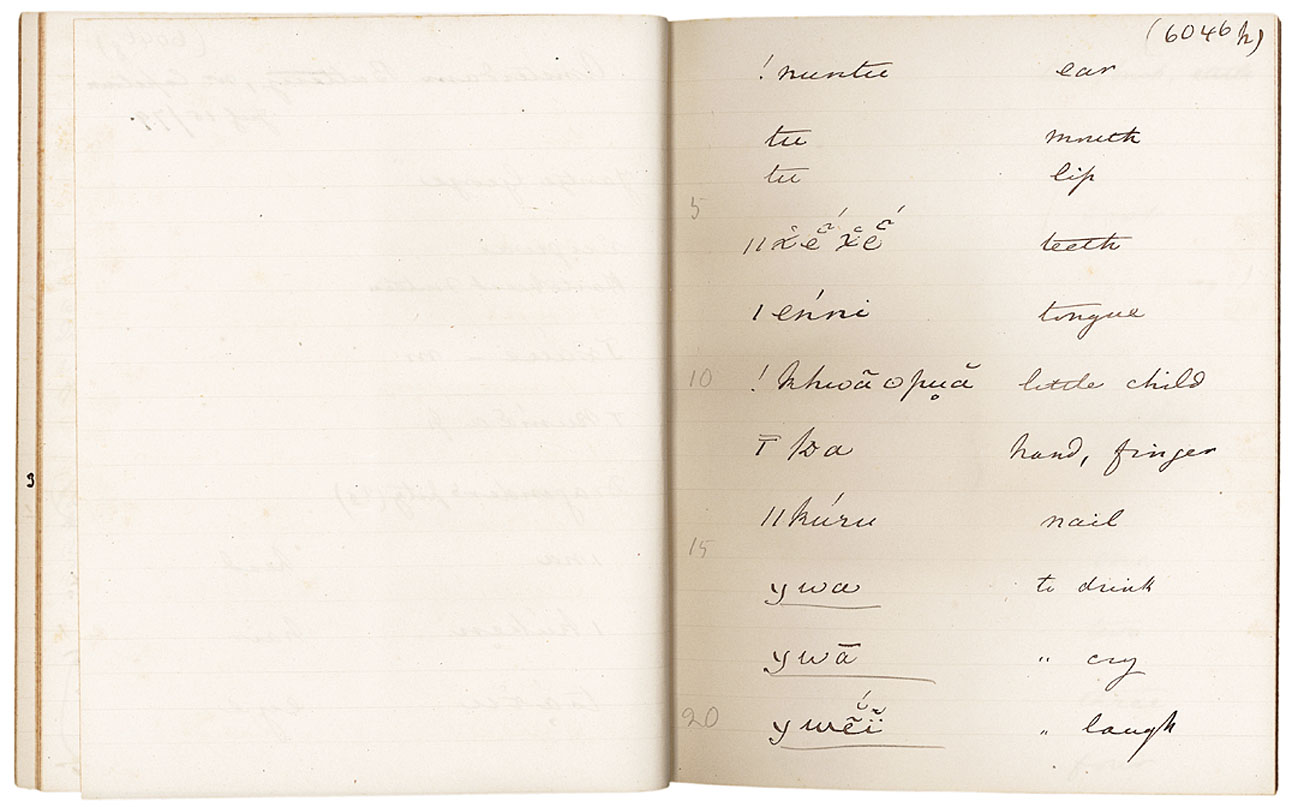 (6046 h)
! nuntu ear
tu mouth
tu lip
5
teeth
| én̍ni tongue
10 ! khwã ʘpu̥ã little child
hand, finger
|| kúru nail
15
ywa to drink
ywā " cry
20 " laugh
3